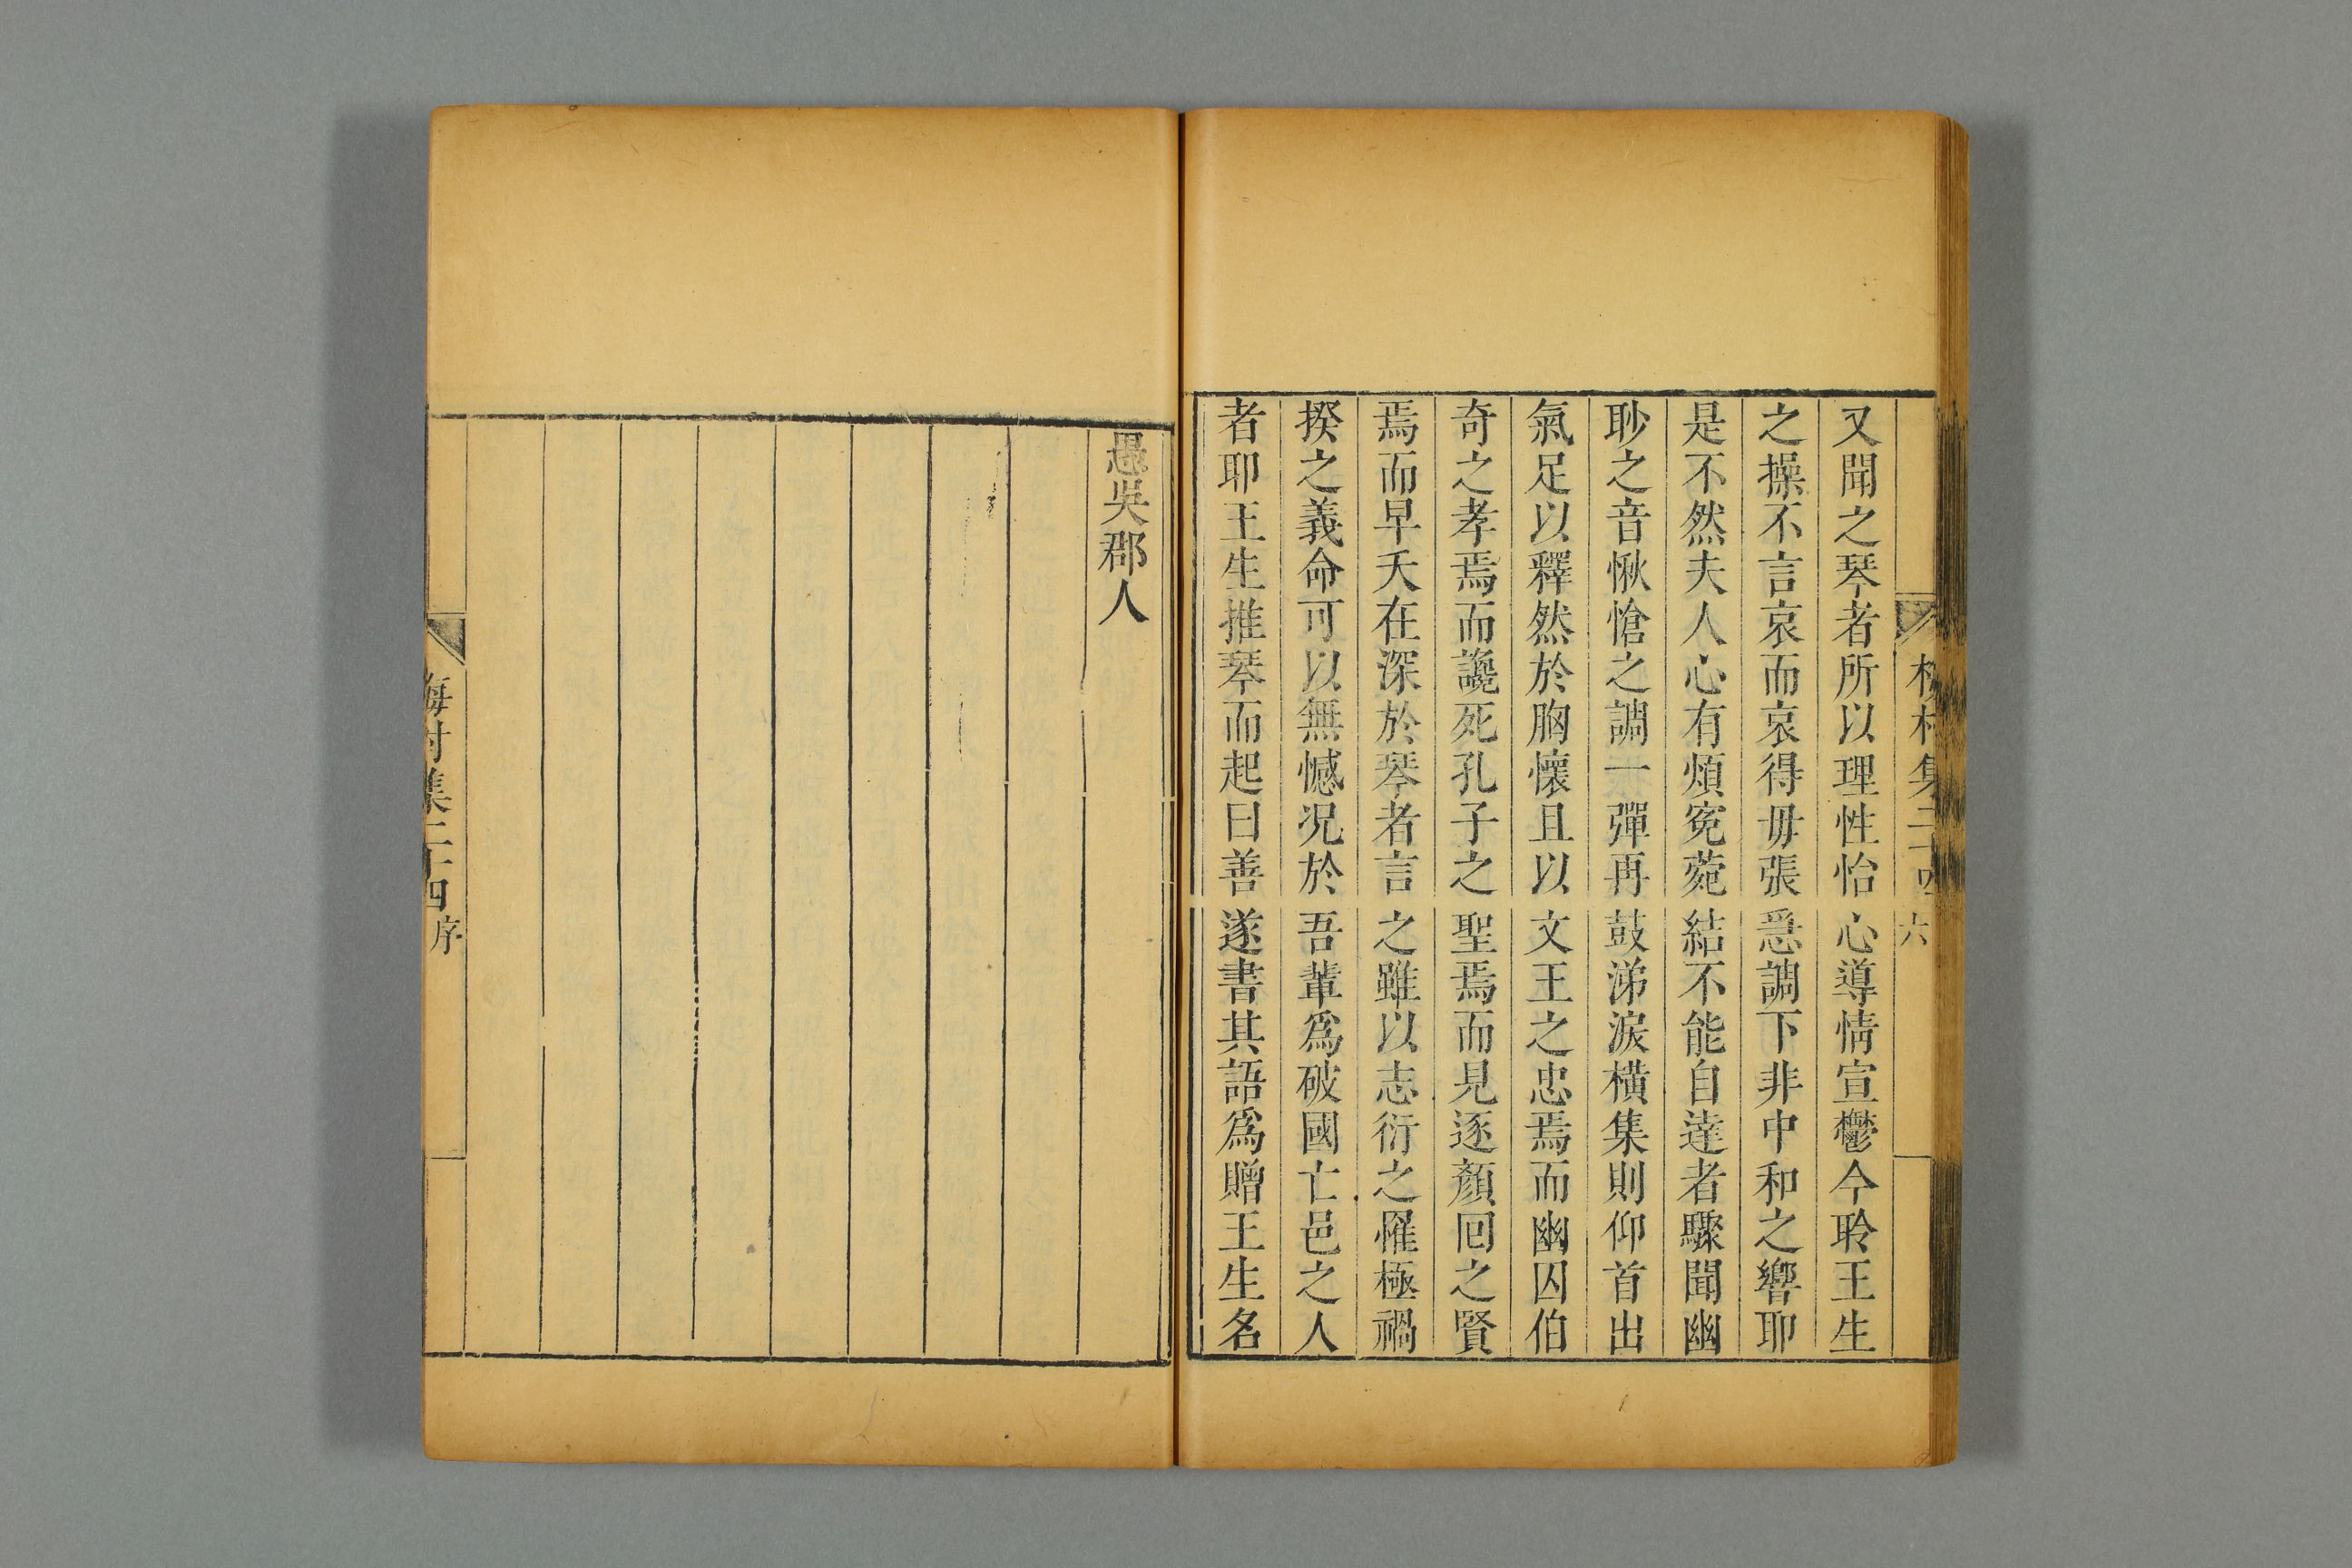 梅村集二十四
六
又聞之琴者所以理性怡心導情宣鬱今聆王生
之操不言哀而哀得毋張急調下非中和之響耶
是不然夫人心有煩寃菀結不能自達者驟聞幽
眇之音愀愴之調一彈再鼓涕淚橫集則仰首出
氣足以釋然於胸懷且以文王之忠焉而幽囚伯
奇之孝焉而讒死孔子之聖焉而見逐顏囘之賢
焉而早夭在深於琴者言之雖以志衍之罹極禍
揆之義命可以無憾況於吾輩爲破國亡邑之人
者耶王生推琴而起曰善遂書其語爲贈王生名
愚吳郡人
梅村集二十四
序